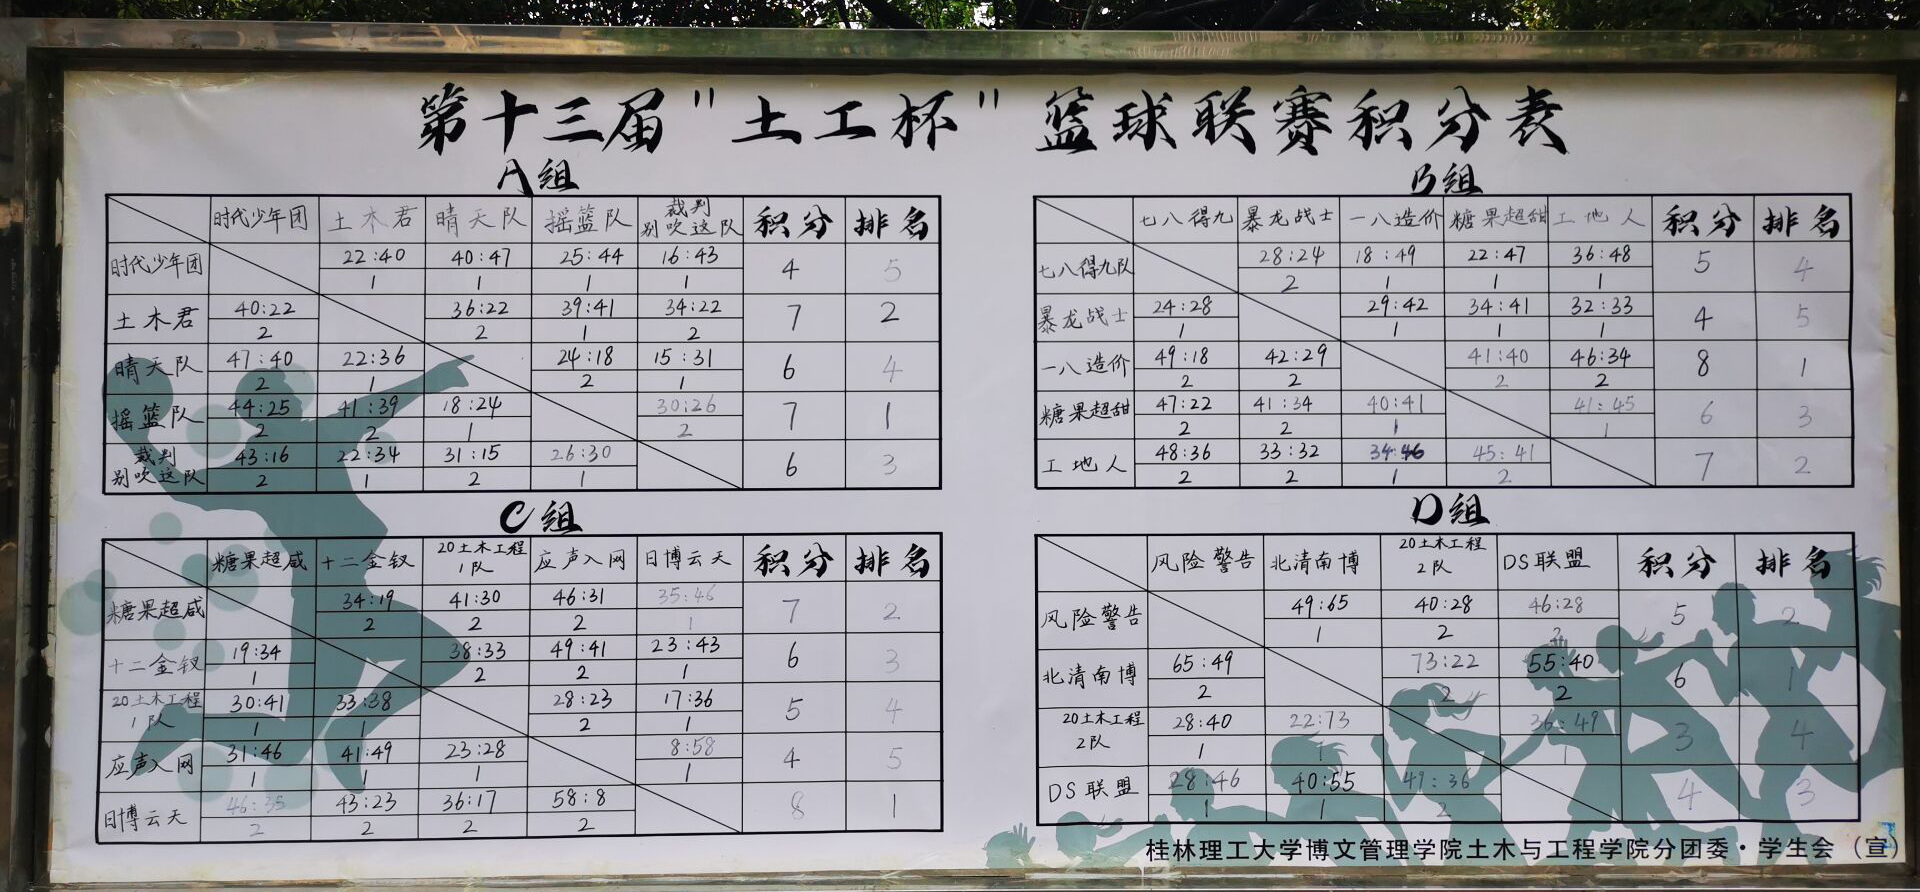 第十三届"土工杯"篮球联赛积分表
A组
时代少年团 土木君 晴天队 摇篮队 裁判别吹这队 积分 排名
时代少年团 22:40 40:47 25:44 16:43 4 5
1 1 1 1
土木君 40:22 36:22 39:41 34:22 7 2
2 2 1 2
晴天队 47:40 22:36 24:18 15:31 6 4
2 1 2 1
摇篮队 44:25 41:39 18:24 30:26 7 1
2 2 1 2
裁判别吹这队 43:16 22:34 31:15 26:30 6 3
2 1 2 1
B组
七八得九 暴龙战士 一八造价 糖果超甜 工地人 积分 排名
七八得九队 28:24 18:49 22:47 36:48 5 4
2 1 1 1
暴龙战士 24:28 29:42 34:41 32:33 4 5
1 1 1 1
一八造价 49:18 42:29 41:40 46:34 8 1
2 2 2 2
糖果超甜 47:22 41:34 40:41 41:45 6 3
2 2 1 1
工地人 48:36 33:32 34:46 45:41 7 2
2 2 1 2
C组
糖果超咸 十二金钗 20土木工程1队 应声入网 日博云天 积分 排名
糖果超咸 34:19 41:30 46:31 35:46 7 2
2 2 2 1
十二金钗 19:34 38:33 49:41 23:43 6 3
1 2 2 1
20土木工程1队 30:41 33:38 28:23 17:36 5 4
1 1 2 1
应声入网 31:46 41:49 23:28 8:58 4 5
1 1 1 1
日博云天 46:35 43:23 36:17 58:8 8 1
2 2 2 2
D组
风险警告 北清南博 20土木工程2队 DS联盟 积分 排名
风险警告 49:65 40:28 46:28 5 2
1 2 2
北清南博 65:49 73:22 55:40 6 1
2 2 2
20土木工程2队 28:40 22:73 36:49 3 4
1 1 1
DS联盟 28:46 40:55 49:36 4 3
1 1 2
桂林理工大学博文管理学院土木与工程学院分团委·学生会（宣）